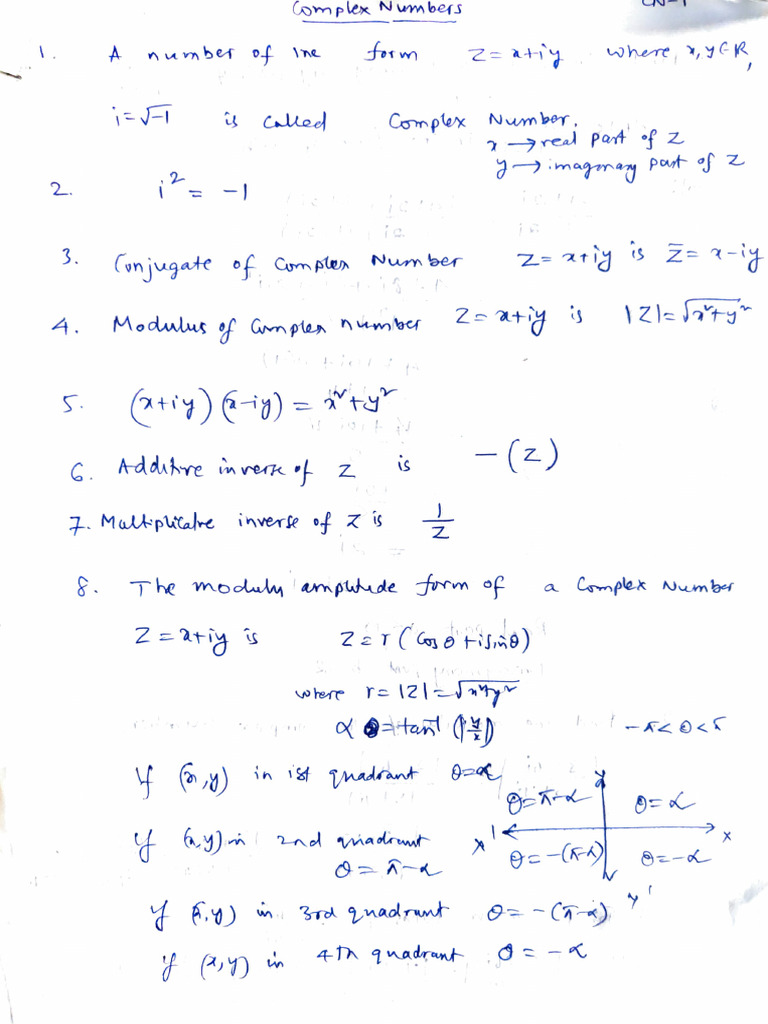 Complex Numbers
CN-1
1. A number of the form Z = x+iy where, x, y ∈ R,
i = √-1 is called Complex Number.
x → real part of Z
y → imaginary part of Z
2. i² = -1
3. Conjugate of Complex Number Z = x+iy is z̄ = x-iy
4. Modulus of Complex number Z = x+iy is |Z| = √x²+y²
5. (x+iy) (x-iy) = x²+y²
6. Additive inverse of Z is -(Z)
7. Multiplicative inverse of Z is 1/Z
8. The modulus amplitude form of a Complex Number
Z = x+iy is Z = r (Cos θ + i Sin θ)
where r = |Z| = √x²+y²
α = tan⁻¹ (|y/x|) -π < θ < π
If (x,y) in 1st quadrant θ = α
If (x,y) in 2nd quadrant
θ = π-α
If (x,y) in 3rd quadrant θ = -(π-α)
if (x,y) in 4th quadrant θ = -α
y
θ = π-α θ = α
x' x
θ = -(π-α) θ = -α
y'